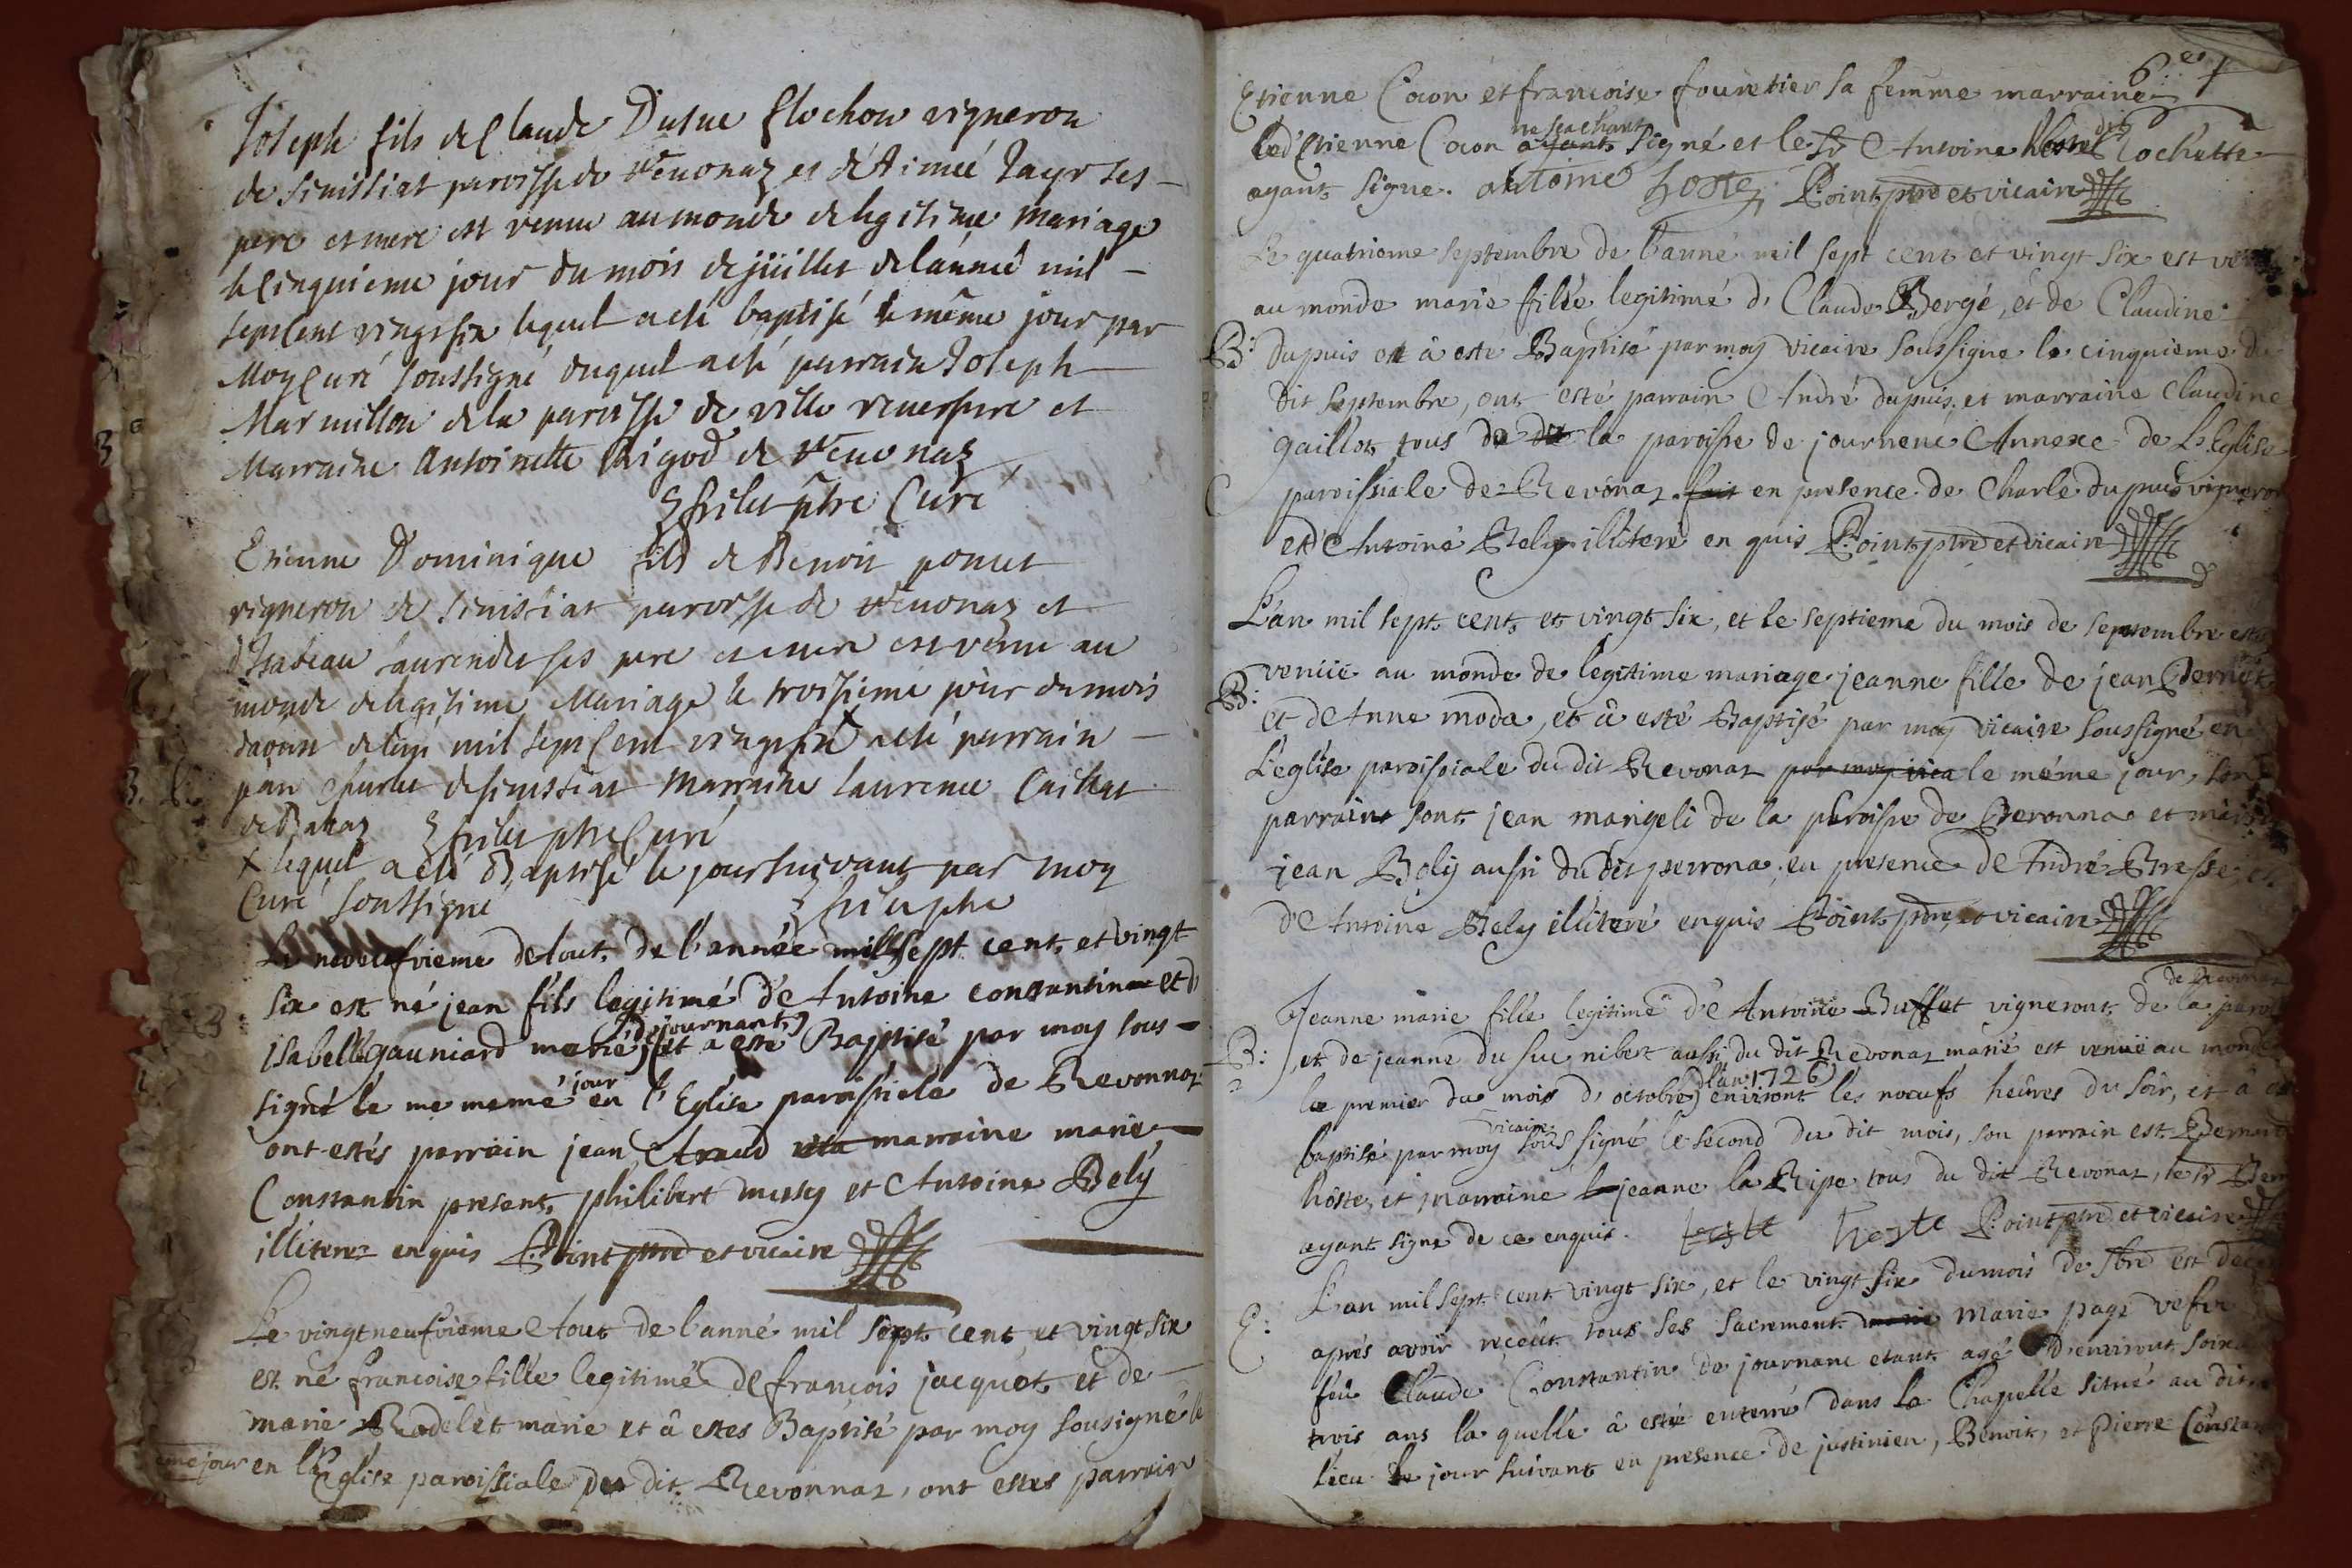 Joseph fils de Claude Dusuc Flochon vigneron
de Senissiat paroisse de Revonaz et d'Aimeé Jayr ses
pere et mere est venu au monde de legitime mariage
le cinquieme jour du mois de juillet de lánneé mil
sept cent vingt six lequel a eté baptisé le même jour par
Moy Curé soussigné duquel a eté parrain Joseph
Marmillon de la paroisse de ville reuersure et
Marraine Antoinette Rigod de Revonaz
prtre Curé
Etienne Dominique fils de Benoit poncet
vigneron de Senissiat paroisse de Revonaz et
d'Isabeau ses pere et mere est venu au
monde de legitime Mariage le troisieme jour du mois
daoust de lan mil sept cent vingt six + a eté parrain
de senissiat Marraine Laurence Caillat
prtre Curé
+ lequel a eté Baptisé le jour suivant par moy
Curé soussigné
Le neveufvieme d'Aout de l'année mil sept cent et vingt
B
six est né jean fils legitimé d'Antoine constantin et d
isabelle gauniard marié (de journant) et a esté Baptisé par moy sous
signé le me memé jour en l'Eglise paroissiele de Revonnaz
ont estés parrain jean Araud marraine marie
Constantin present, philibert et Antoine Bely
illiteréz enquis Point ptre et vicaire
Le vingt neufvieme Aout de l'anné mil sept cent et vingt six
est né francoise fille legitimé de francois jacquet et de
marie Rodelet marie et â estes Baptisé par moy sousigné le
eme jour en l'Eglise paroissiale du dit Revonnaz, ont estes parrain
6e
Etienne Cocon et francoise fouretier sa femme marraine
led Etienne Cocon ne scachant signé et le Sr Antoine hoste dit Rochette
ayant signe. antoine hoste Point ptre et vicaire
Le quatrieme septembre de l'anné mil sept cent et vingt six est
au monde marie fille legitimé d. Claude Bergé, et de Claudine
B: dupuis et â esté Baptisé par moy vicaire soussigne le cinquieme d
dit septembre, ont esté parrain André dupuis, et marraine Claudine
gaillot tous de la paroisse de journent Annexe de L'Eglise
paroissiale de Revonaz fait en presence de Charle dupuis vigneron
et d'Antoine Bely illiteré en quis Point ptre et vicaire
L'an mil sept cent et vingt six, et le septieme du mois de septembre est
B:
venüe au monde de legitime mariage jeanne fille de jean
et d'Anne moda, et â esté Baptisé par moy vicaire soussigné en
L'eglise paroissiale du dit Revonaz par moy vica le méme jour, son
parraint sont jean mangeli de la paroisse de et
jean Bely aussi du dit perrona, en presence de André Bresse, et
d'Antoine Bely illiteré enquis Point ptre et vicaire
de Revonnaz
Jeanne marie fille legitimé d'Antoine Buffet vigneront de la
B:
et de jeanne du suc nibert aussi du dit Revonaz marié est venuë au monde
le premier du mois d'octobre l'an 1726 environt les noeufs heûres du soir, et â
baptisé par moy vicaire sous signé le second du dit mois, son parrain est Bernard
hôste, et marraine jeanne la Ripe tous du dit Revonaz, le sr
ayant signe de ce enquis. hoste hoste Point ptre et vicaire
L'an mil sept cent vingt six, et le vingt six du mois de 8bre est
E:
aprés avoir receüt tous ses sacrement marie page vefve
feu Claude Constantin de journant etant agé d'environt
trois ans la quelle â esté enterré dans la Chapelle situé au dit
lieu le jour suivant en presence de justinien, Benoit, et Pierre